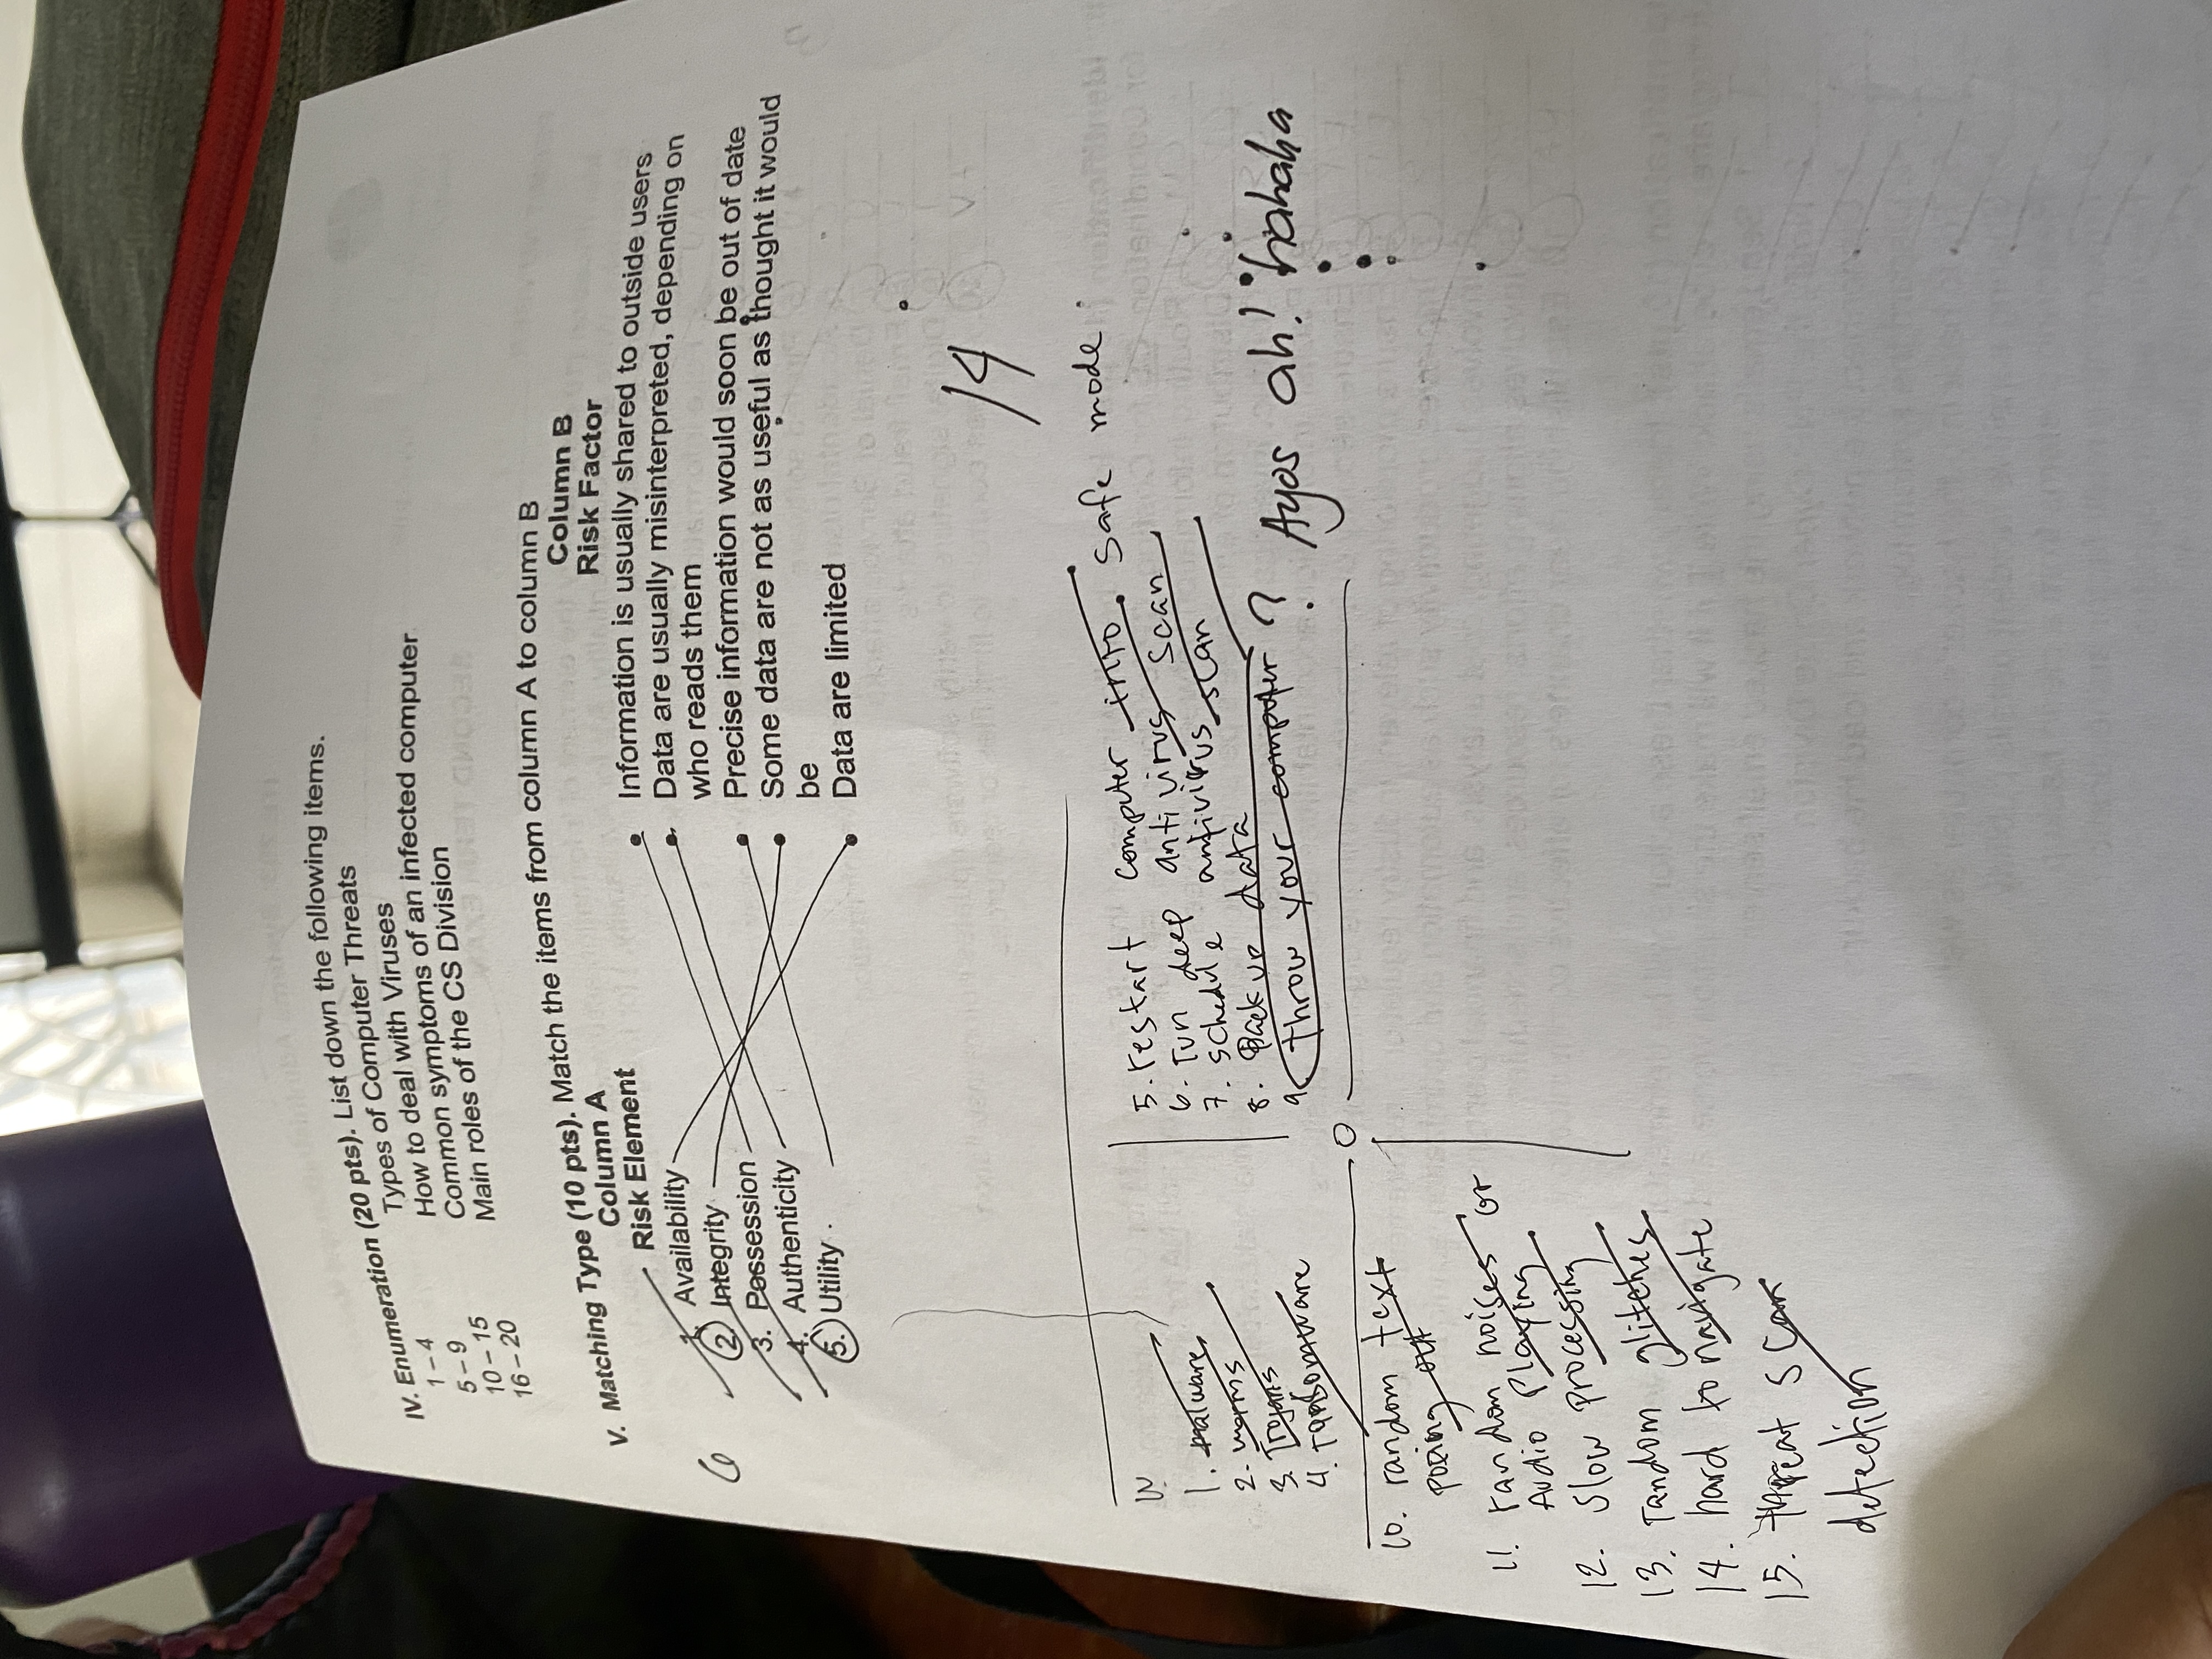 IV. Enumeration (20 pts). List down the following items.
1 – 4 Types of Computer Threats
5 – 9 How to deal with Viruses
10 – 15 Common symptoms of an infected computer
16 – 20 Main roles of the CS Division
V. Matching Type (10 pts). Match the items from column A to column B
Column A Column B
Risk Element Risk Factor
1. Availability
2. Integrity
3. Possession
4. Authenticity
5. Utility
Information is usually shared to outside users
Data are usually misinterpreted, depending on
who reads them
Precise information would soon be out of date
Some data are not as useful as thought it would
be
Data are limited
6
14
IV.
1. malware
2. worms
3. Trojans
4. ransomware
5. restart computer into safe mode
6. run deep antivirus scan
7. schedule antivirus scan
8. Back up data
9. throw your computer ? Ayos ah! hahaha
10. random text
poping out
11. random noises or
Audio Playing
12. Slow processing
13. random glitches
14. hard to navigate
15. threat scan
detection